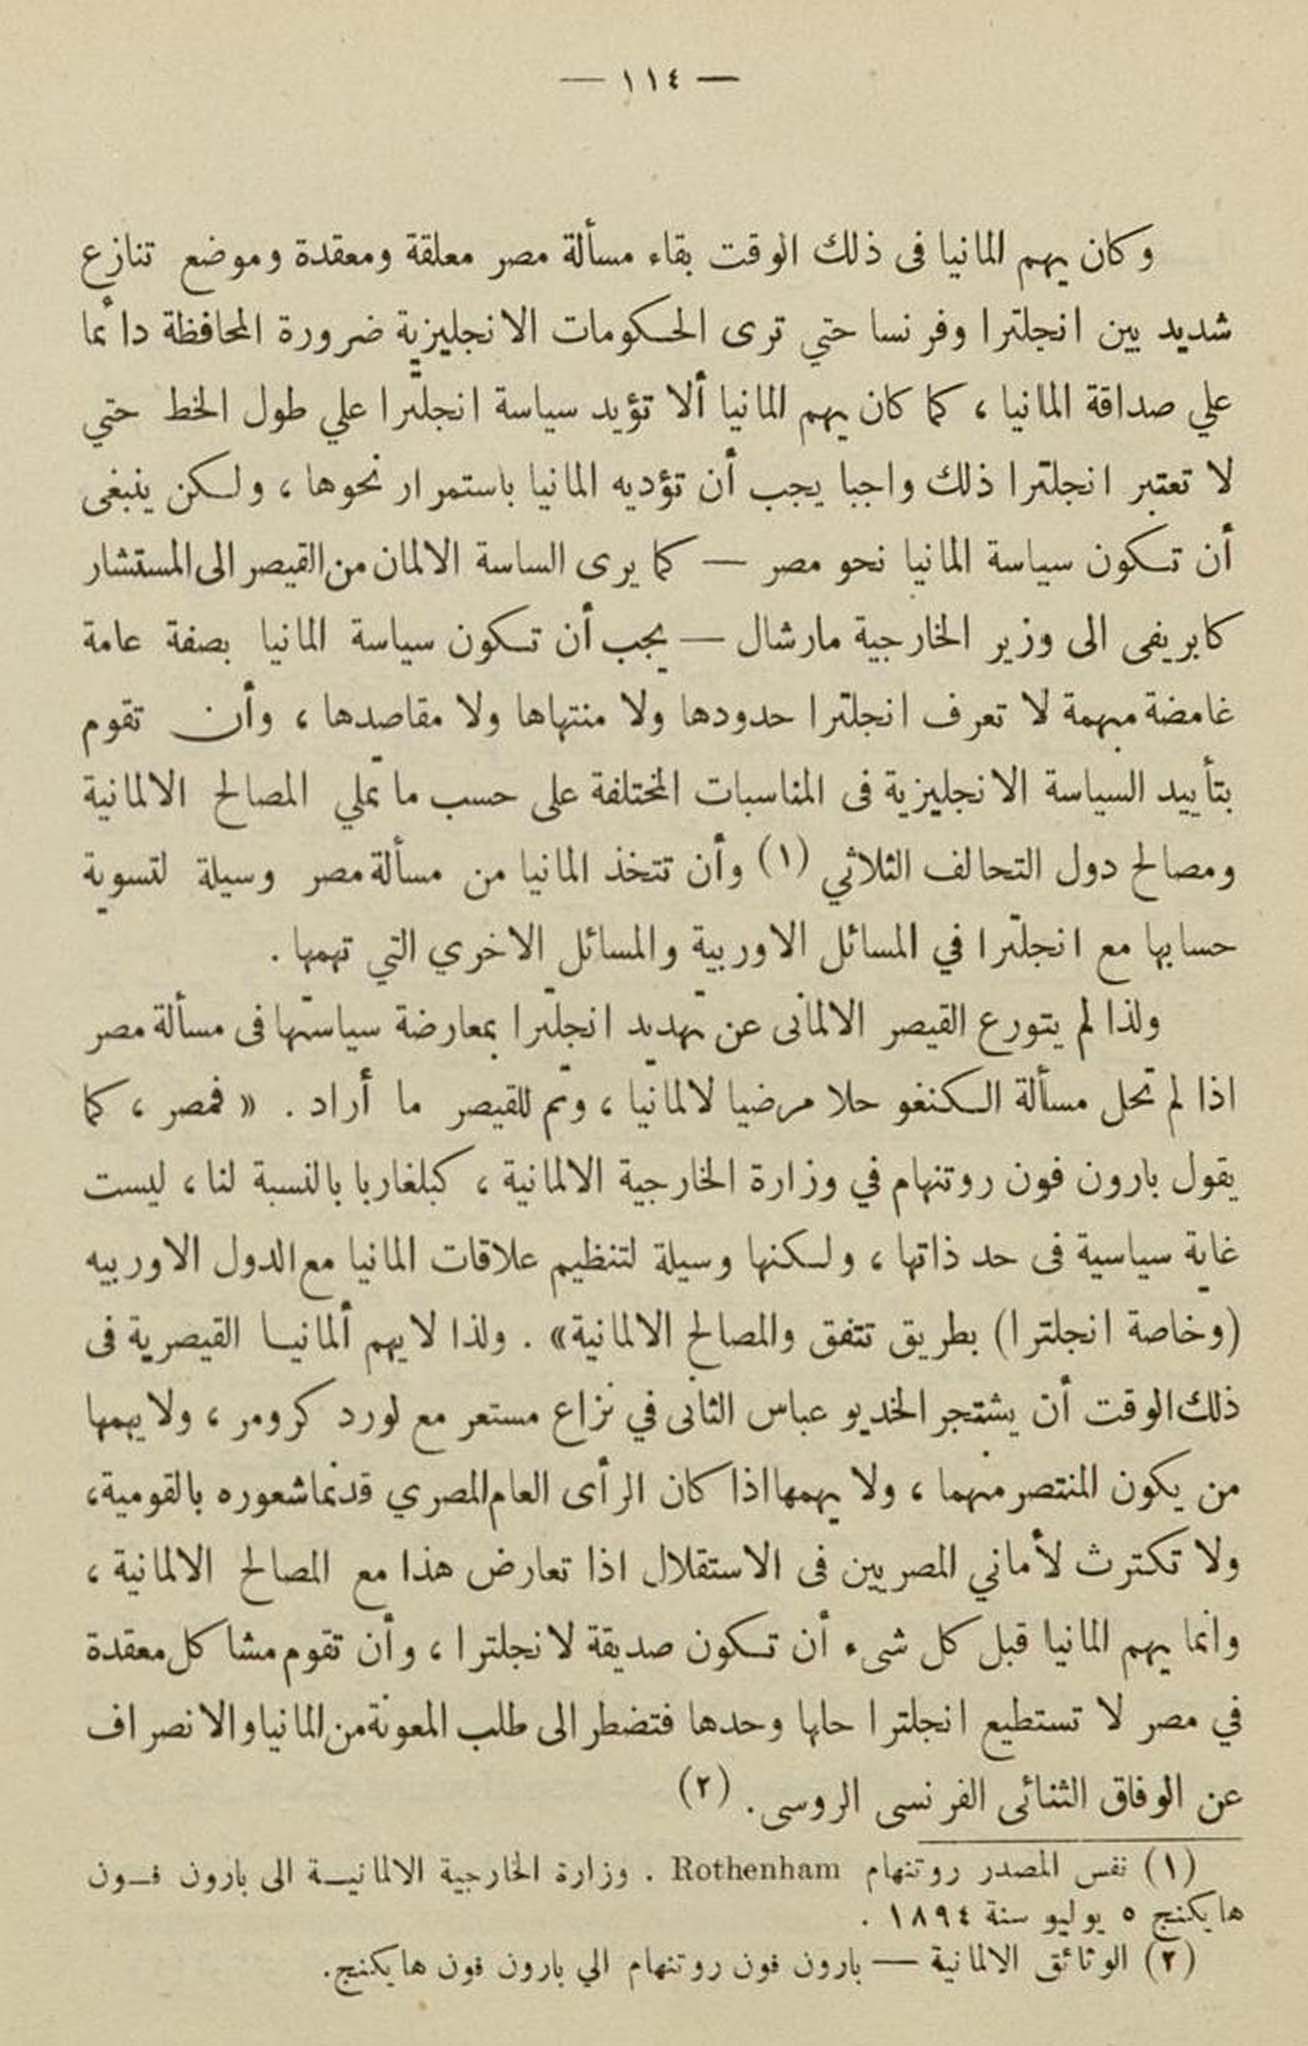 — ١١٤ —
وكان يهم المانيا فى ذلك الوقت بقاء مسألة مصر معلقة ومعقدة وموضع تنازع
شديد بين انجلترا وفرنسا حتي ترى الحكومات الانجليزية ضرورة المحافظة دائما
علي صداقة المانيا ، كما كان يهم المانيا ألا تؤيد سياسة انجلترا علي طول الخط حتي
لا تعتبر انجلترا ذلك واجبا يجب أن تؤديه المانيا باستمرار نحوها ، ولكن ينبغى
أن تكون سياسة المانيا نحو مصر — كما يرى الساسة الالمان من القيصر الى المستشار
كابريفى الى وزير الخارجية مارشال — يجب أن تكون سياسة المانيا بصفة عامة
غامضة مبهمة لا تعرف انجلترا حدودها ولا منتهاها ولا مقاصدها ، وأن تقوم
بتأييد السياسة الانجليزية فى المناسبات المختلفة على حسب ما تملي المصالح الالمانية
ومصالح دول التحالف الثلاثي (١) وأن تتخذ المانيا من مسألة مصر وسيلة لتسوية
حسابها مع انجلترا في المسائل الاوربية والمسائل الاخري التي تهمها .
ولذا لم يتورع القيصر الالمانى عن تهديد انجلترا بمعارضة سياستها فى مسألة مصر
اذا لم تحل مسألة الكنغو حلا مرضيا لالمانيا ، وتم للقيصر ما أراد . « فمصر ، كما
يقول بارون فون روتنهام في وزارة الخارجية الالمانية ، كبلغاريا بالنسبة لنا ، ليست
غاية سياسية فى حد ذاتها ، ولكنها وسيلة لتنظيم علاقات المانيا مع الدول الاوربيه
(وخاصة انجلترا) بطريق تتفق والمصالح الالمانية» . ولذا لا يهم ألمانيا القيصرية فى
ذلك الوقت أن يشتجر الخديو عباس الثانى في نزاع مستعر مع لورد كرومر ، ولا يهمها
من يكون المنتصر منهما ، ولا يهمها اذا كان الرأى العام المصري قد نما شعوره بالقومية ،
ولا تكترث لأماني المصريين فى الاستقلال اذا تعارض هذا مع المصالح الالمانية ،
وانما يهم المانيا قبل كل شىء أن تكون صديقة لانجلترا ، وأن تقوم مشاكل معقدة
في مصر لا تستطيع انجلترا حلها وحدها فتضطر الى طلب المعونة من المانيا والانصراف
عن الوفاق الثنائى الفرنسى الروسى . (٢)
(١) نفس المصدر روتنهام Rothenham . وزارة الخارجية الالمانيـة الى بارون فون
هايكنج ٥ يوليو سنة ١٨٩٤ .
(٢) الوثائق الالمانية — بارون فون روتنهام الي بارون فون هايكنج.